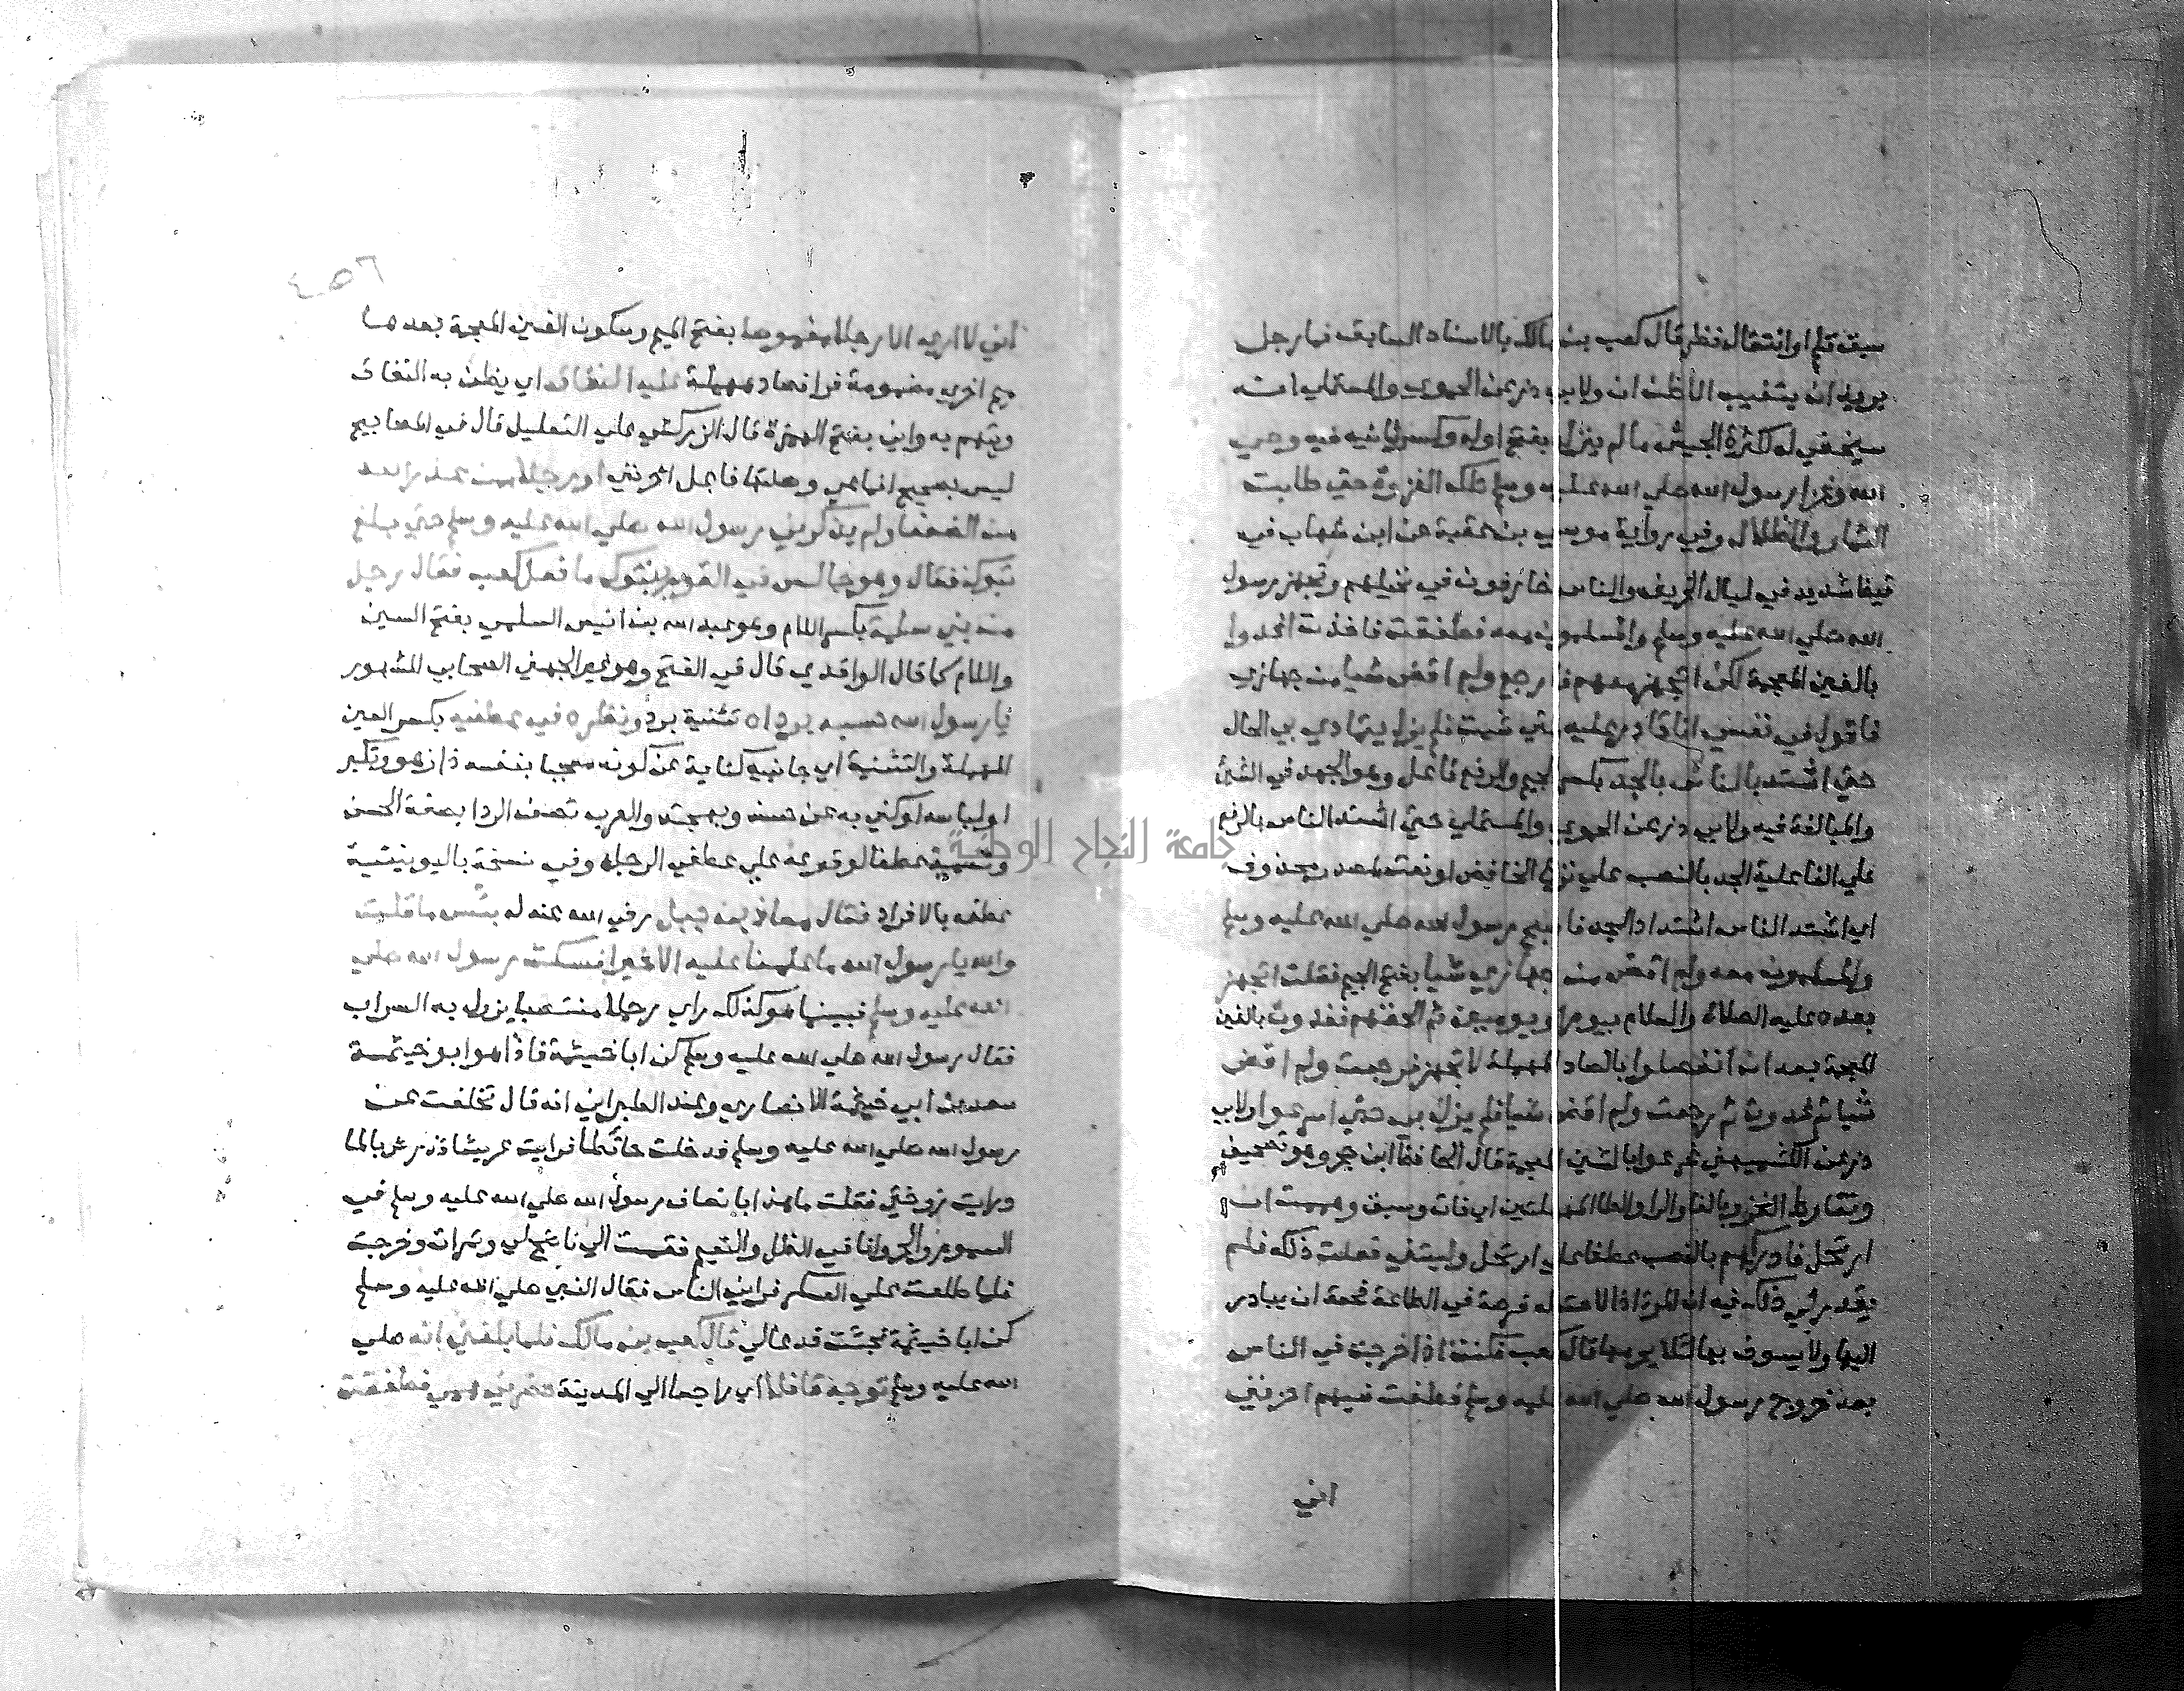 سبق قلم او انتقال نظر قال كعب بن مالك بالاسناد السابق فما رجل
يريد ان يتغيب الا ظن ان ولابي ذر عن الحموي والمستملي انه
سيخفي له لكثرة الجيش ما لم ينزل بفتح اوله وكسر ثالثه فيه وحي
الله وغزا رسول الله صلي الله عليه وسلم تلك الغزوة حين طابت
الثمار والظلال وفي رواية موسي بن عقبة عن ابن شهاب في
قيظ شديد في ليال الخريف والناس خارفون في نخيلهم وتجهز رسول
الله صلي الله عليه وسلم والمسلمون معه فطفقت فاخذت اغدوا
بالغين المعجمة لكي اتجهز معهم فارجع ولم اقض شيا من جهازي
فاقول في نفسي انا قادر عليه متي شيت فلم يزل يتمادي بي الحال
حتي اشتد بالناس بالجد بكسر الجيم والرفع فاعل وهو الجهد في الشي
والمبالغة فيه ولابي ذر عن الحموي والمستملي حتي اشتد الناس بالرفع
علي الفاعلية الجد بالنصب علي نزع الخافض او نعت لمصدر محذوف
اي اشتد الناس اشتداد الجد فاصبح رسول الله صلي الله عليه وسلم
والمسلمون معه ولم اقض من جهازي شيا بفتح الجيم فقلت اتجهز
بعده عليه الصلاة والسلام بيوم او يومين ثم الحقهم فغدوت بالغين
المعجمة بعد ان انفصلوا بالصاد المهملة لاتجهز فرجعت ولم اقض
شيا ثم غدوت ثم رجعت ولم اقض شيا فلم يزل بي حتي اسرعوا ولابي
ذر عن الكشميهني شرعوا بالشين المعجمة قال الحافظ ابن حجر وهو تصحيف
وتفارط الغزو بالفا والرا والطا المهملتين اي فات وسبق وهممت ان
ارتحل فادركهم بالنصب عطفا علي ارتحل وليتني فعلت ذلك فلم
يقدر لي ذلك فيه ان المرا اذا لاحت له فرصة في الطاعة فحقه ان يبادر
اليها ولا يسوف بها لئلا يحرمها قال كعب فكنت اذا خرجت في الناس
بعد خروج رسول الله صلي الله عليه وسلم فطفت فيهم احزنني
اني
٤٥٦
اني لا اري الا رجلا مغموصا بفتح الميم وسكون الغين المعجمة بعدها
ميم اخري مضمومة فواو فصاد مهملة عليه النفاق اي يظن به النفاق
ويتهم به واني بفتح الهمزة قال الزركشي علي التعليل قال في المصابيح
ليس بصحيح انما هي وصلتها فاعل احزنني او رجلا ممن عذر الله
من الضعفا ولم يذكرني رسول الله صلي الله عليه وسلم حتي بلغ
تبوك فقال وهو جالس في القوم بتبوك ما فعل كعب فقال رجل
من بني سلمة بكسر اللام وهو عبد الله بن انيس السلمي بفتح السين
واللام كما قال الواقدي قال في الفتح وهو غير الجهني الصحابي المشهور
يا رسول الله حبسه برداه تثنية برد ونظره في عطفيه بكسر العين
المهملة والتثنية اي جانبيه كناية عن كونه معجبا بنفسه ذا زهو وتكبر
او لباسه او كني به عن حسنه وبهجته والعرب تصف الردا بصفة الحسن
وتسميه عطفا لوقوعه علي عطفي الرجل وفي نسخة باليونينية
عطفه بالافراد فقال معاذ بن جبل رضي الله عنه له بئس ما قلت
والله يا رسول الله ما علمنا عليه الا خيرا فسكت رسول الله صلي
الله عليه وسلم فبينما هو كذلك راي رجلا منتصبا يزول به السراب
فقال رسول الله صلي الله عليه وسلم كن ابا خيثمة فاذا هو ابو خيثمة
سعد بن ابي خيثمة الانصاري وعند الطبراني انه قال تخلفت عن
رسول الله صلي الله عليه وسلم فدخلت حائطا فرايت عريشا قد رش بالما
ورايت زوجتي فقلت ما هذا بانصاف رسول الله صلي الله عليه وسلم في
السموم والحر وانا في الظل والنعيم فقمت الي ناضح لي وتمرات وخرجت
فلما طلعت علي العسكر فراني الناس فقال النبي صلي الله عليه وسلم
كن ابا خيثمة فجئت فدعا لي قال كعب بن مالك فلما بلغني انه صلي
الله عليه وسلم توجه قافلا اي راجعا الي المدينة حضرني همي فطفقت
جامعة النجاح الوطنية